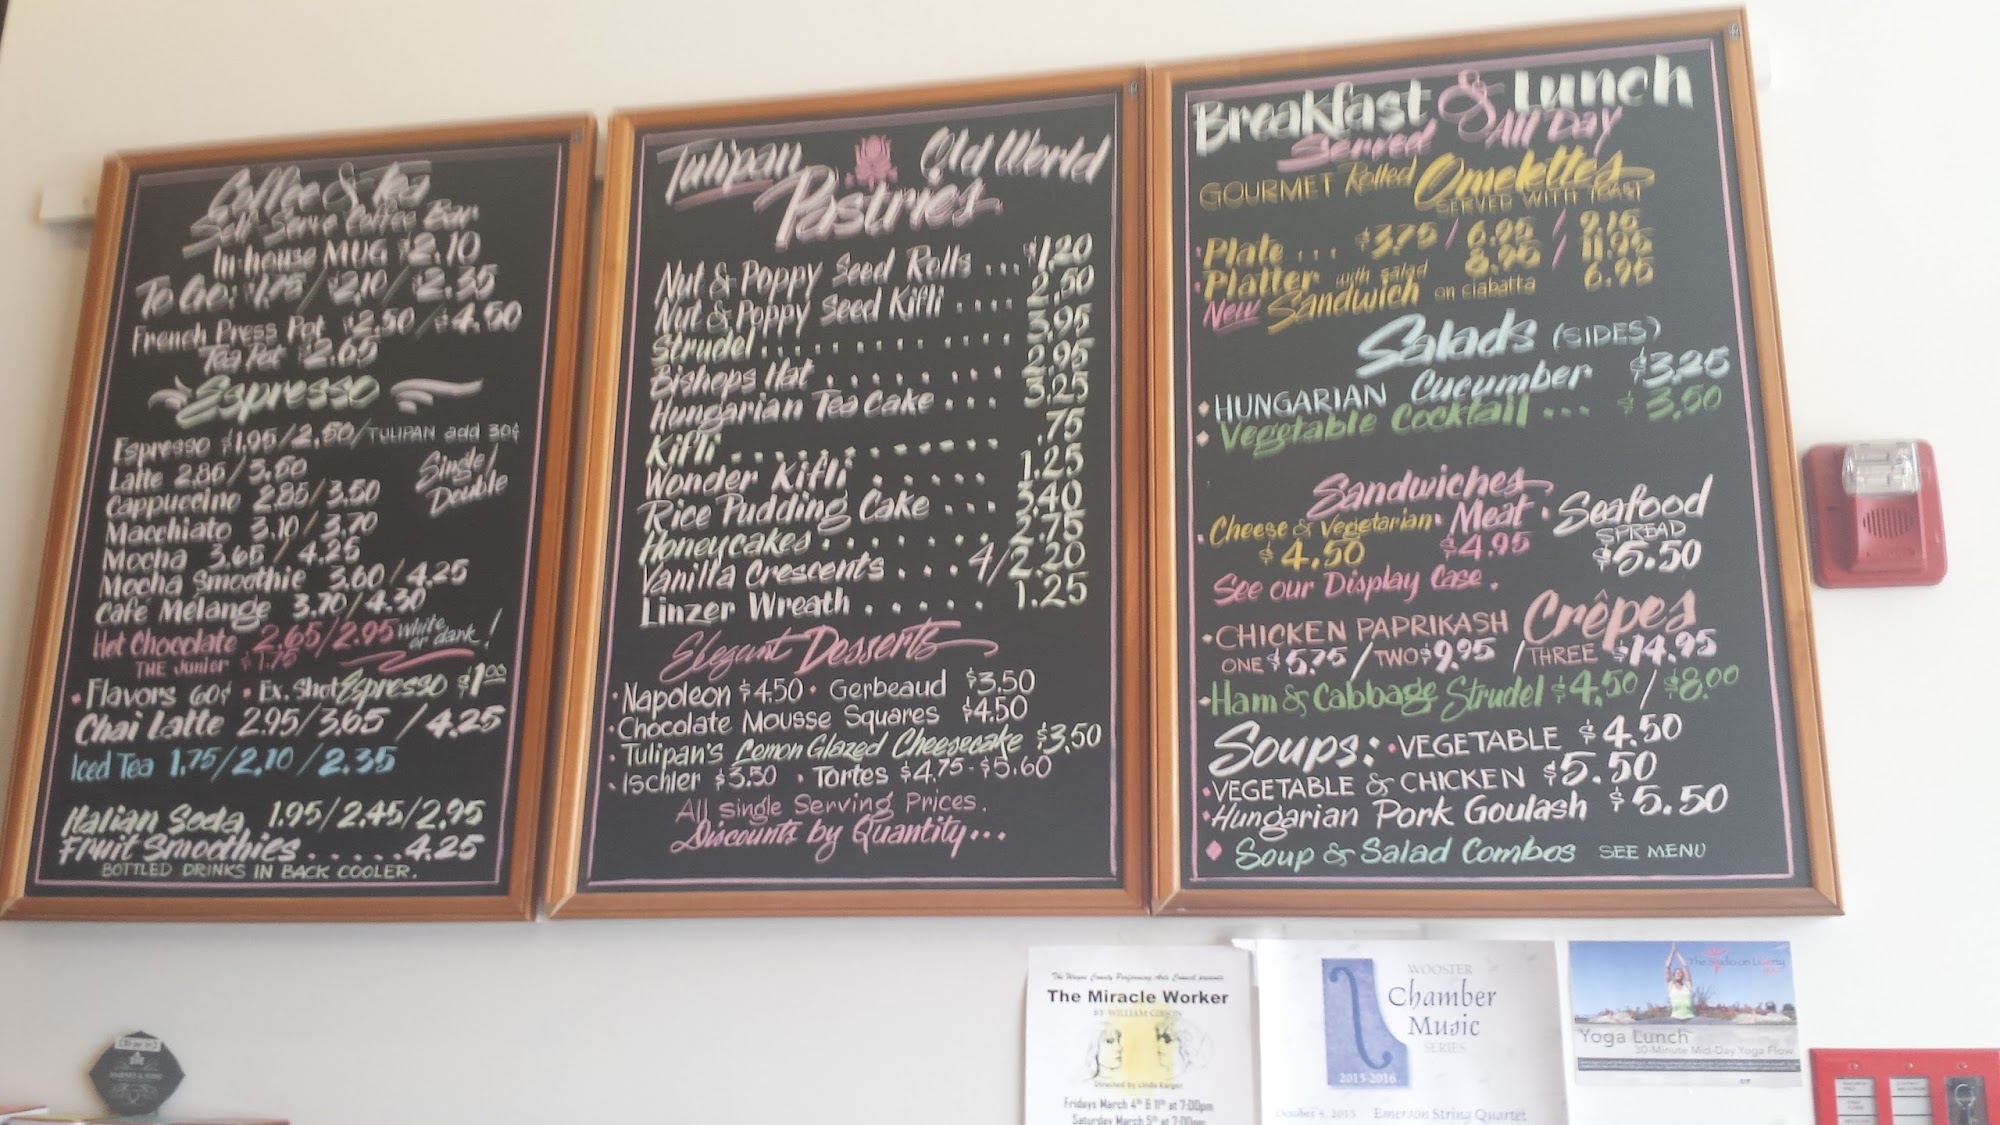 Coffee & Tea
Self-Serve Coffee Bar
In-house MUG $2.10
To Go: $1.75 / $2.10 / $2.35
French Press Pot $2.50 / $4.50
Tea Pot $2.65
Espresso
Espresso $1.95/2.50/TULIPAN add 30¢
Latte 2.85/3.50
Single/
Double
Cappuccino 2.85/3.50
Macchiato 3.10/3.70
Mocha 3.65/4.25
Mocha Smoothie 3.60/4.25
Café Mélange 3.70/4.30
Hot Chocolate 2.65/2.95 White or dark!
THE Junior $1.75
• Flavors 60¢ • Ex. Shot Espresso $1.00
Chai Latte 2.95/3.65/4.25
Iced Tea 1.75/2.10/2.35
Italian Soda 1.95/2.45/2.95
Fruit Smoothies......4.25
BOTTLED DRINKS IN BACK COOLER.
Tulipan Old World
Pastries
Nut & Poppy Seed Rolls ... $1.20
Nut & Poppy Seed Kifli .... 2.50
Strudel.......... 3.95
Bishops Hat ........ 2.95
Hungarian Tea Cake ... 3.25
Kifli .......... .75
Wonder Kifli ..... 1.25
Rice Pudding Cake ... 3.40
Honeycakes....... 2.75
Vanilla Crescents ... 4/2.20
Linzer Wreath ..... 1.25
Elegant Desserts
• Napoleon $4.50 • Gerbeaud $3.50
• Chocolate Mousse Squares $4.50
• Tulipan's Lemon Glazed Cheesecake $3.50
• Ischler $3.50 • Tortes $4.75-$5.60
All Single Serving Prices.
Discounts by Quantity...
Breakfast & Lunch
Served All Day
GOURMET Rolled Omelettes
SERVED WITH TOAST
• Plate ... $3.75 / 6.95 / 9.15
• Platter with salad 8.95 / 11.95
New Sandwich on ciabatta 6.95
Salads (SIDES)
• HUNGARIAN Cucumber $3.25
• Vegetable Cocktail ... $3.50
Sandwiches
• Cheese & Vegetarian • Meat • Seafood
SPREAD
$4.50 $4.95 $5.50
See our Display Case.
Crêpes
• CHICKEN PAPRIKASH
ONE $5.75 / TWO $9.95 / THREE $14.95
• Ham & Cabbage Strudel $4.50/$8.00
Soups: • VEGETABLE $4.50
• VEGETABLE & CHICKEN $5.50
• Hungarian Pork Goulash $5.50
Soup & Salad Combos SEE MENU
The Wayne County Performing Arts Council presents
The Miracle Worker
BY WILLIAM GIBSON
Directed by Linda Karger
Fridays March 4th & 11th at 7:00pm
Saturday March 5th at 7:00pm
WOOSTER
Chamber
Music
SERIES
2015-2016
October 4, 2015 Emerson String Quartet
The Studio on Liberty
Yoga Lunch
30-Minute Mid-Day Yoga Flow